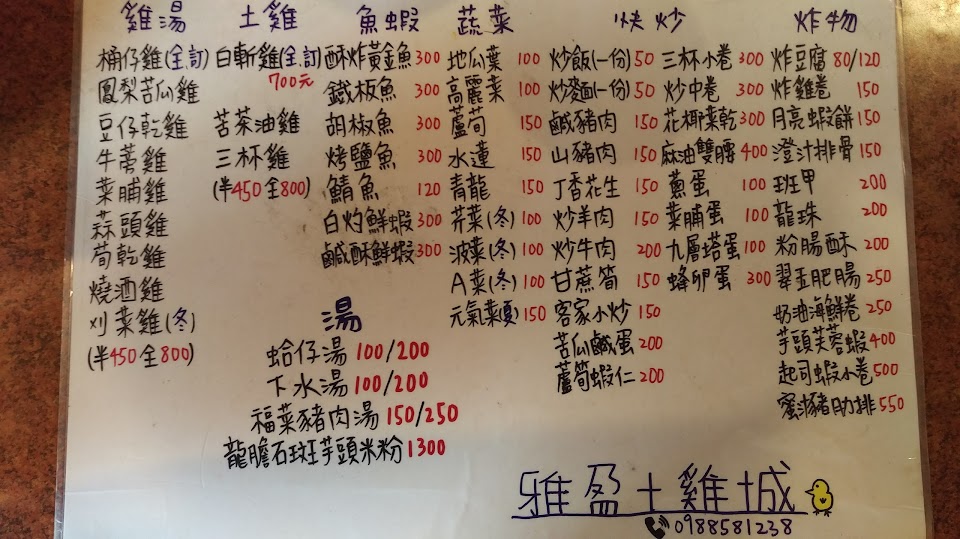 雞湯
桶仔雞(全.訂)
鳳梨苦瓜雞
豆仔乾雞
牛蒡雞
菜脯雞
蒜頭雞
筍乾雞
燒酒雞
刈菜雞(冬)
(半450全800)
土雞
白斬雞(全.訂)
700元
苦茶油雞
三杯雞
(半450全800)
魚蝦
酥炸黃金魚300
鐵板魚 300
胡椒魚 300
烤鹽魚 300
鯖魚 120
白灼鮮蝦300
鹹酥鮮蝦300
湯
蛤仔湯 100/200
下水湯 100/200
福菜豬肉湯 150/250
龍膽石斑芋頭米粉 1300
蔬菜
地瓜葉 100
高麗菜 100
蘆筍 150
水蓮 150
青龍 150
芥菜(冬) 100
波菜(冬) 100
A菜(冬) 100
元氣菜(夏) 150
快炒
炒飯(一份) 50
炒麵(一份) 50
鹹豬肉 150
山豬肉 150
丁香花生 150
炒羊肉 150
炒牛肉 200
甘蔗筍 150
客家小炒 150
苦瓜鹹蛋 200
蘆筍蝦仁 200
三杯小卷 300
炒中卷 300
花椰菜乾 300
麻油雙腰 400
蔥蛋 100
菜脯蛋 100
九層塔蛋 100
蜂卵蛋 300
炸物
炸豆腐 80/120
炸雞卷 150
月亮蝦餅 150
澄汁排骨 150
斑甲 200
龍珠 200
粉腸酥 200
翠玉肥腸 250
奶油海鮮卷 250
芋頭芙蓉蝦 400
起司蝦小卷 500
蜜汁豬肋排 550
雅盈土雞城
0988581238